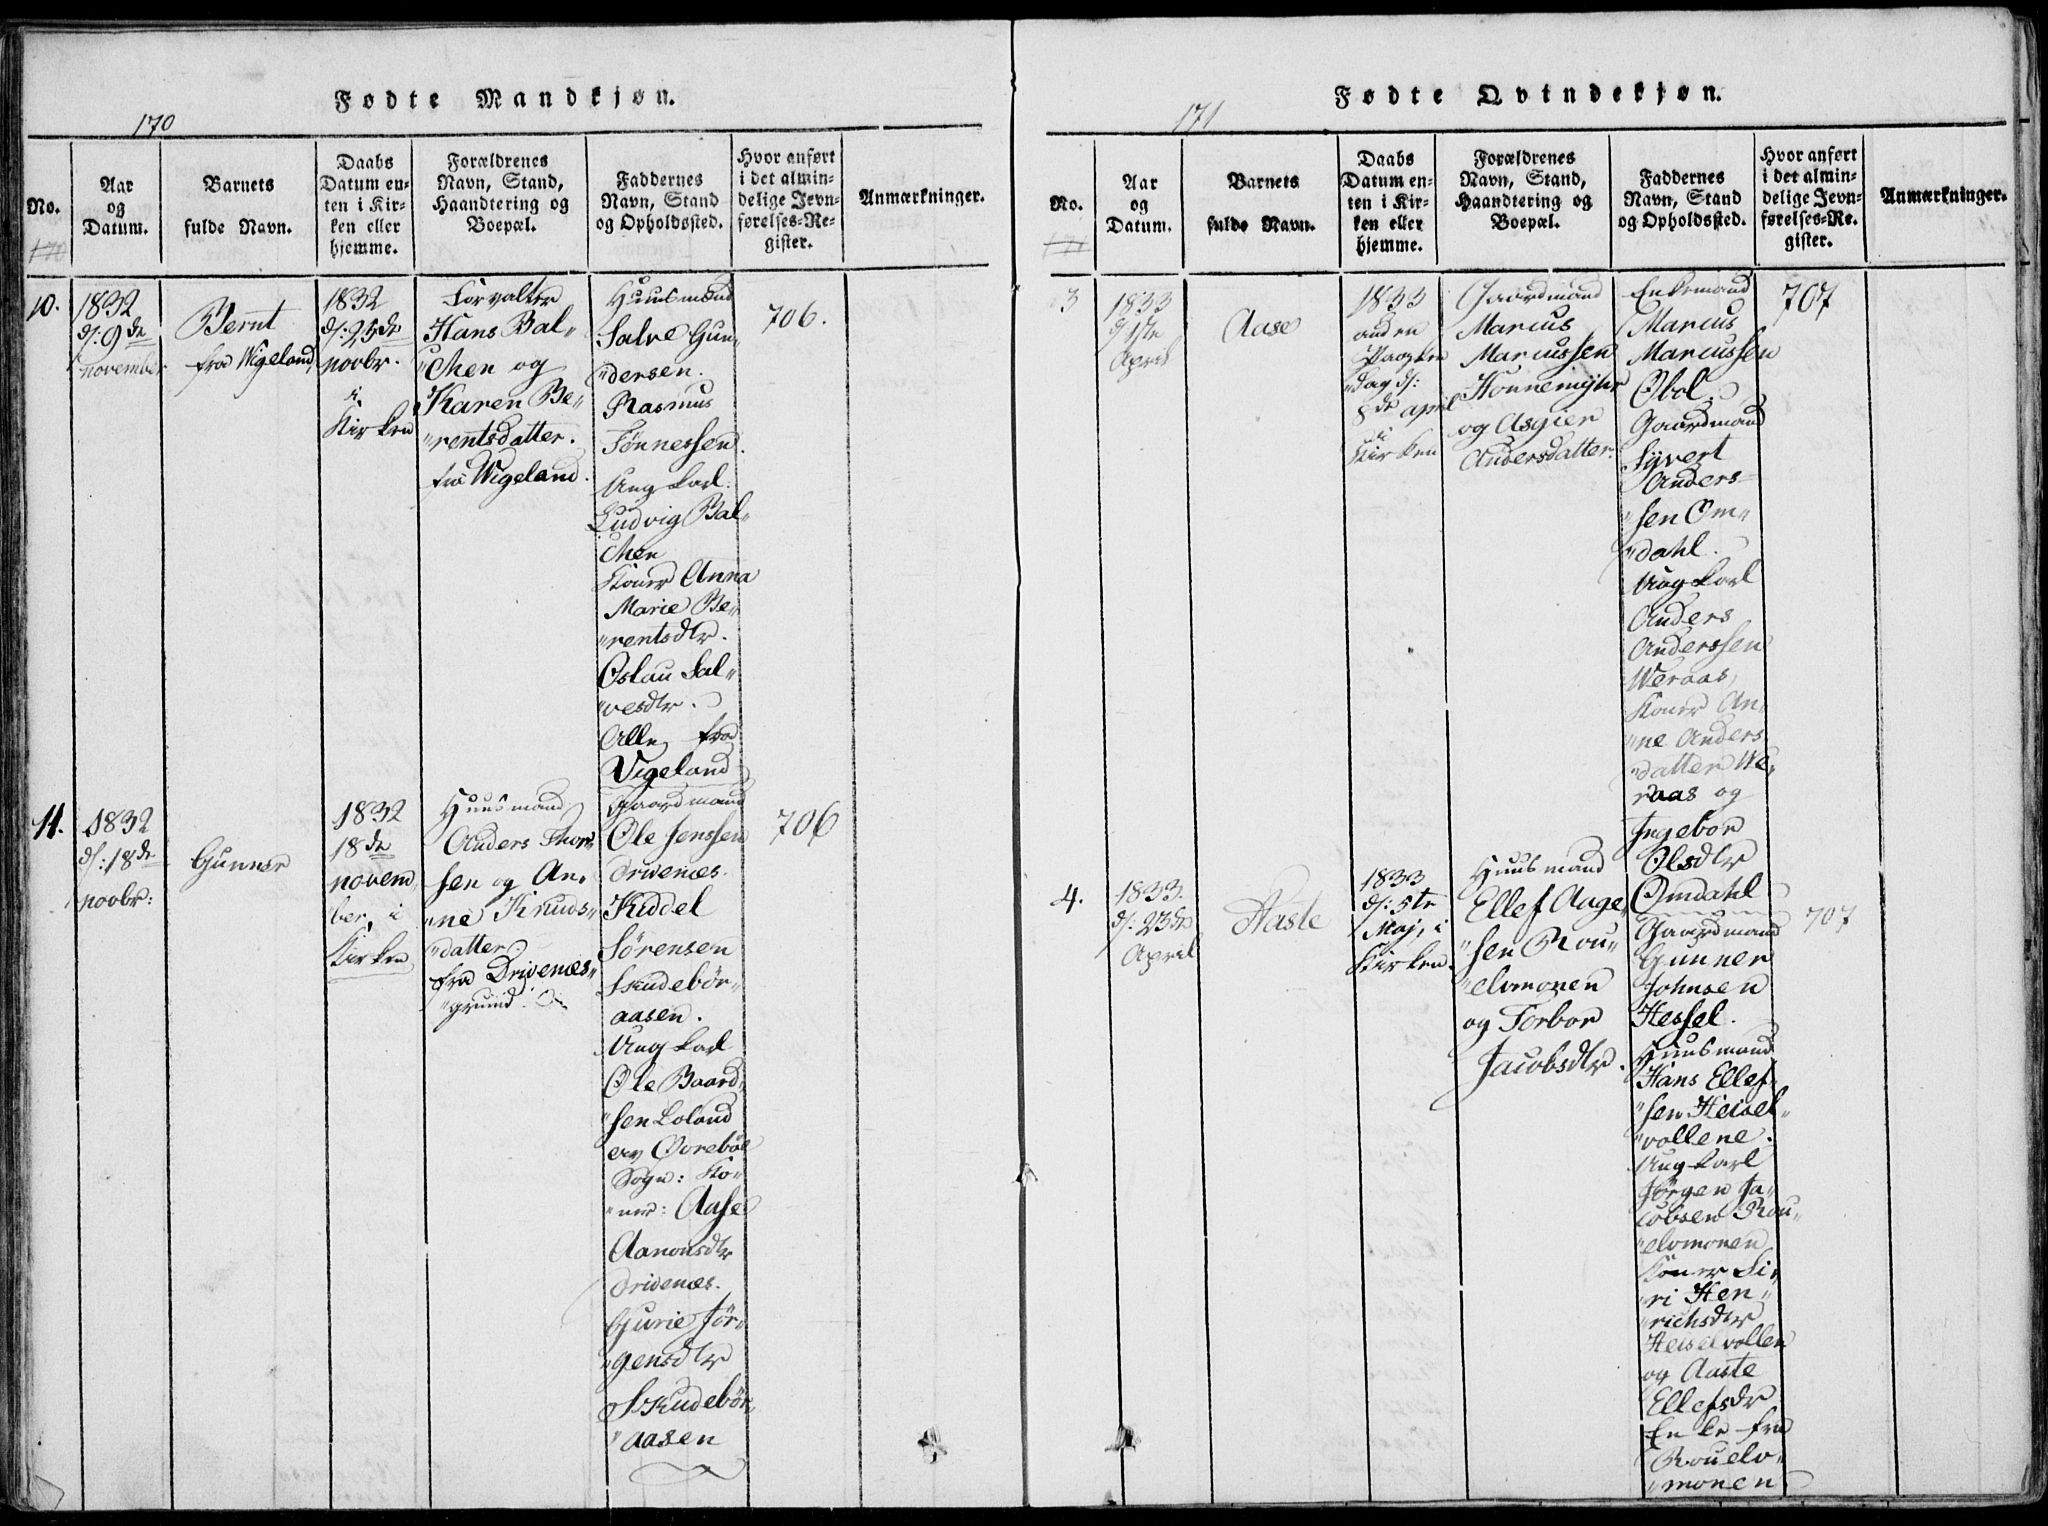 Fødte Mandkjøn.
170
No.
170
Aar
og
Datum.
Barnets
fulde Navn.
Daabs
Datum en-
ten i Kir-
ken eller
hjemme.
Forældrenes
Navn, Stand,
Haandtering og
Boepæl.
Faddernes
Navn, Stand
og Opholdssted.
Hvor anført
i det almin-
delige Jevn-
førelses-Re-
gister.
Anmærkninger.
10.
1832
d: 9de
november
Bernt
fra Wigeland
1832
d: 25de
novbr.
i
Kirken
Forvalter
Hans Bal„
„chen og
Karen Be„
„rentsdatter.
fra Wigeland.
Huusmand
Salve Gun„
„dersen.
Rasmus
Tønnessen.
Ung karl.
Ludvig Bal„
„chen
Koner Anna
Marie Be„
„rentsdtr.
Oslau Sal„
„vesdtr.
Alle fra
Vigeland
706.
11.
1832
d: 18de
novbr:
Gunner
1832
18de
novem
ber, i
Kirken
Huusmand
Anders Thor„
sen og An„
„ne Knuds„
„datter.
fra Drivenæs„
„grund.
Gaardmand
Ole Jenssen
Drivenæs.
Kiddel
Sørensen
Skudebør„
aasen.
Ung karl
Ole Baard„
„sen Loland
av Øvrebøe
Sogn: Ko„
„ner: Aase
Aanonsdtr
Drivenæs.
Gurie Jør„
„gensdtr
Skudebør„
„aasen
706
Fødte Qvindekjøn.
171
No.
171
Aar
og
Datum.
Barnets
fulde Navn.
Daabs
Datum en-
ten i Kir-
ken eller
hjemme.
Forældrenes
Navn, Stand,
Haandtering og
Boepæl.
Faddernes
Navn, Stand
og Opholdssted.
Hvor anført
i det almin-
delige Jevn-
førelses-Re-
gister.
Anmærkninger.
3
1833
d 1ste
April
Aase
1833
anden
Paaske
„dag d:
8de april
i
Kirken
Gaardmand
Marcus
Marcussen
Honnemyhr
og Asgier
Andersdatter.
Enkemand
Marcus
Marcussen
Øbol.
Gaardmand
Syvert
Anders„
„sen Om„
„dahl.
Ung karl
Anders
Anderssen
Weraas,
Koner An„
„ne Anders
„datter We„
raas og
Ingebor
Olsdtr
Omdahl
707
4.
1833.
d: 23de
April
Aaste
1833
d: 5te
Maj, i
Kirken.
Huusmand
Ellef Aage„
„sen Rou„
„elvmonen
og Torbor
Jacobsdtr.
Gaardmand
Gunner
Johnsen
Hessel.
Huusmand
Hans Ellef„
„sen Heisel„
„vollene.
Ung karl
Jørgen Ja„
„cobsen Rou„
„elvmonen
Koner Si„
„ri Hen„
„richsdtr
Heiselvollen
og Aaste
Ellefsdr
Enke fra
Rouelv„
„monen
707